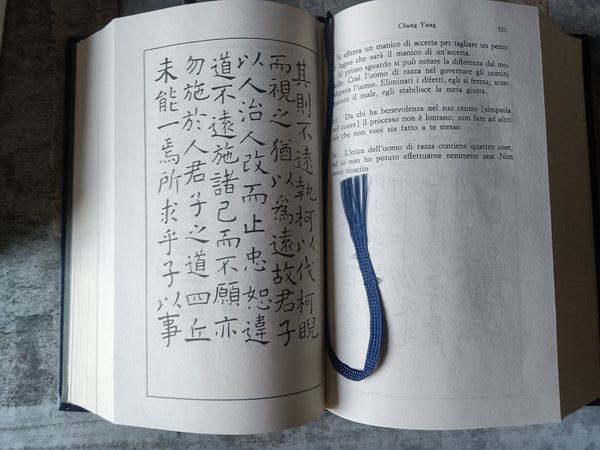 其則不遠執柯以伐柯睨
而視之猶以為遠故君子
以人治人改而止忠恕違
道不遠施諸己而不願亦
勿施於人君子之道四丘
未能一焉所求乎子以事
Chung Yung 551
Si afferra un manico di accetta per tagliare un pezzo
legno che sarà il manico di un'accetta.
Al primo sguardo si può notare la differenza dal mo-
Così l'uomo di razza nel governare gli uomini
l'uomo. Eliminati i difetti, egli si ferma; scon-
il male, egli stabilisce la meta giusta.
Da chi ha benevolenza nel suo centro [simpatia
nel cuore] il processo non è lontano: non fare ad altri
ciò che non vuoi sia fatto a te stesso.
L'etica dell'uomo di razza contiene quattro cose,
ed io non ho potuto effettuarne nemmeno una. Non
sono riuscito